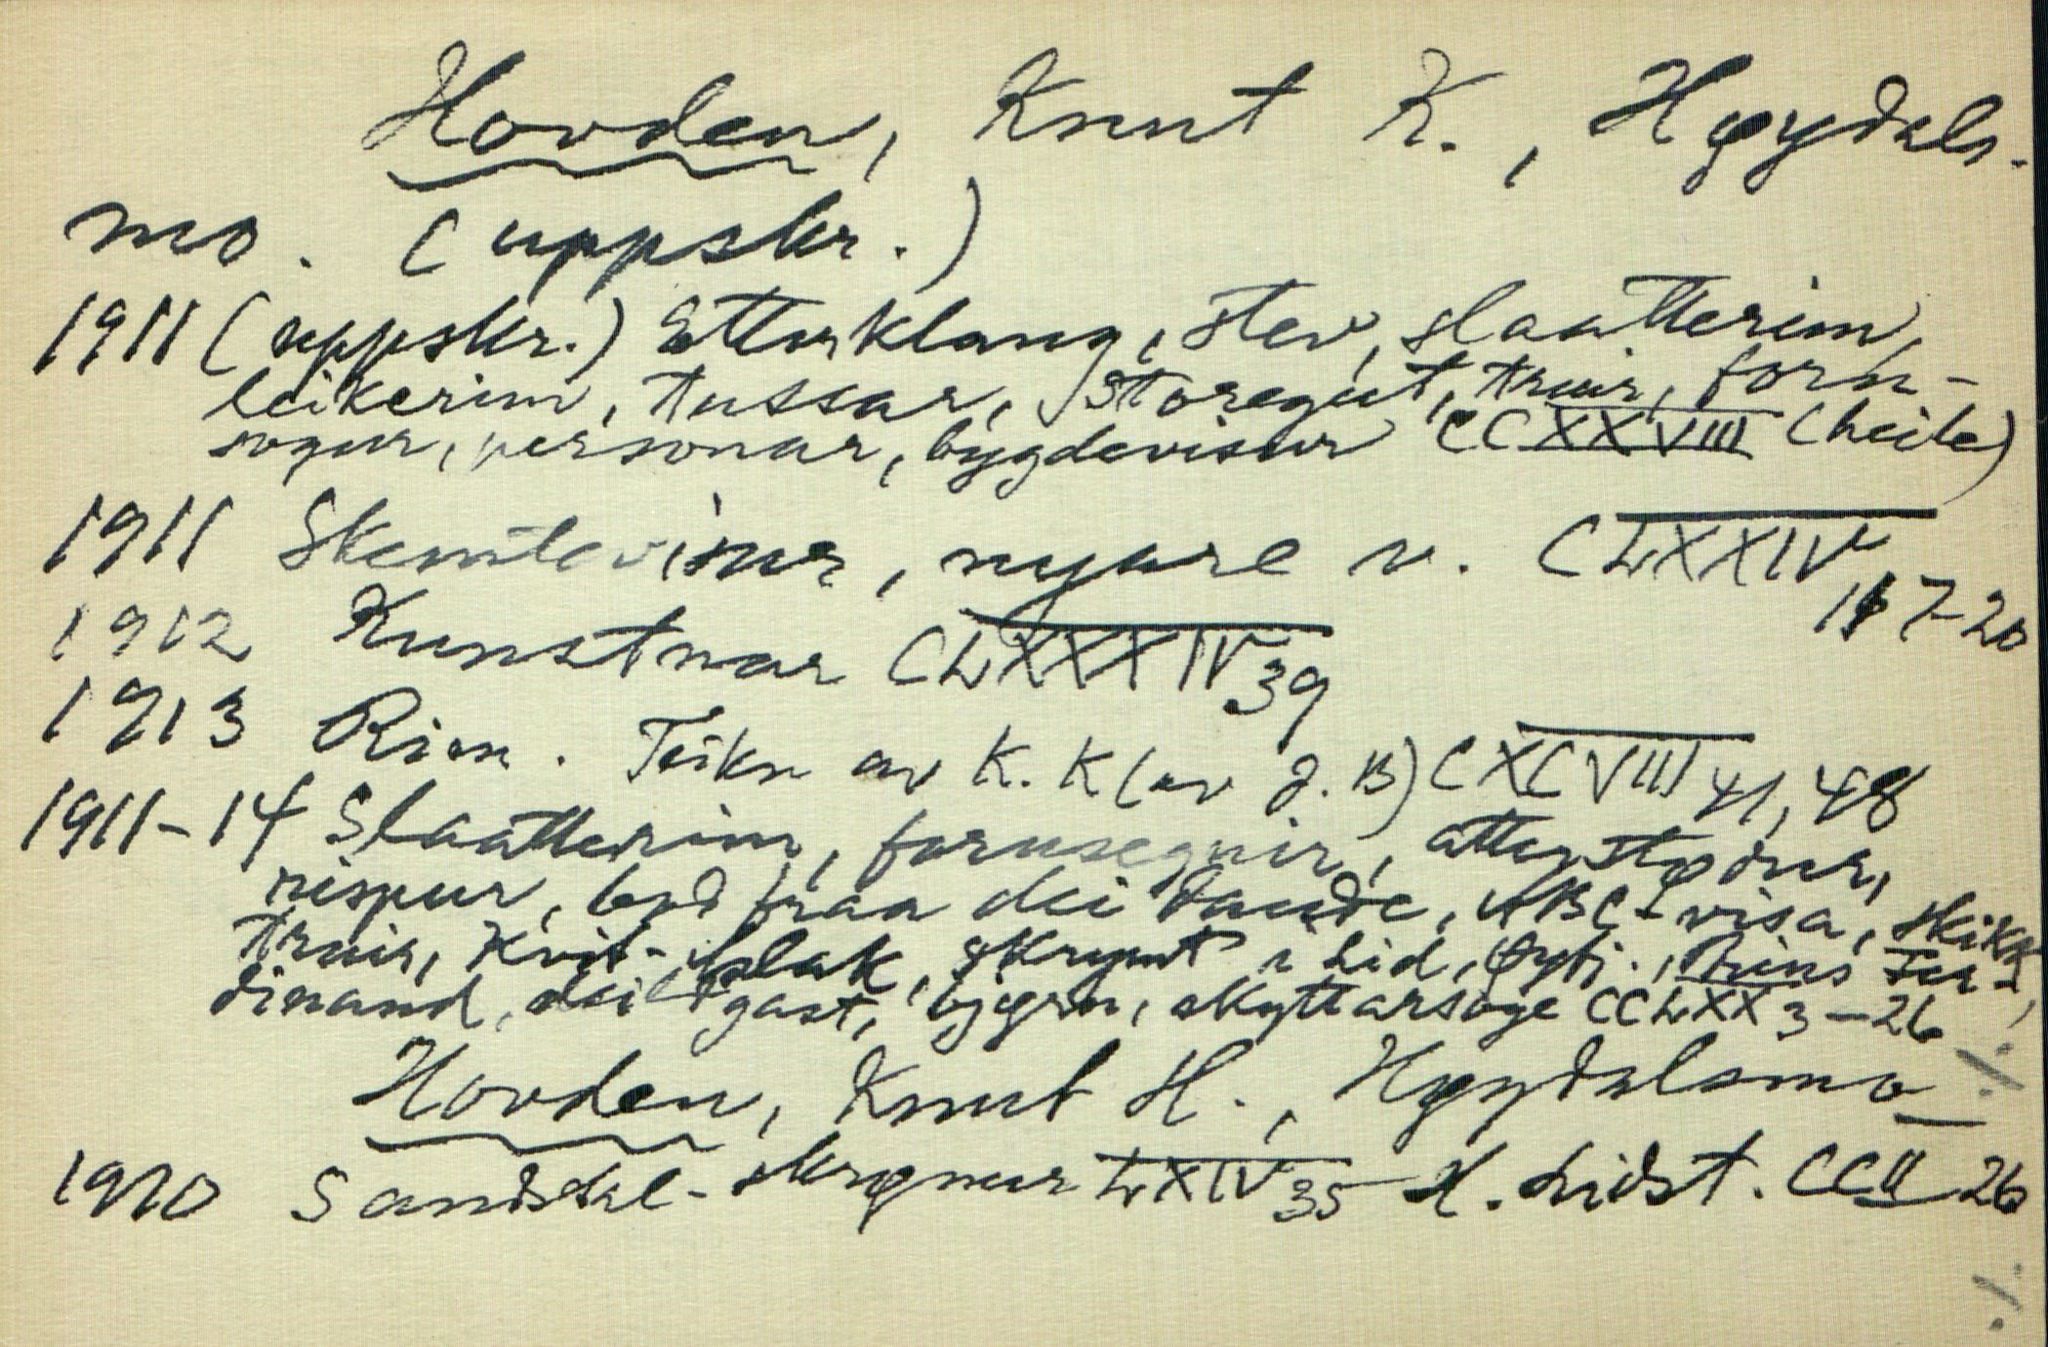 Hovden, Knut K., Høydals-
mo. (uppskr.)
1911 (uppskr.) Etterklang, stev, slaatterim,
leikerim, tussar, Storegut, truir, forn-
sogur, personar, bygdevisur CCXXVIII (heile)
1911 Skemtevisur, nyare v. CLXXIV
17-20
1912 Kunstnar CLXXXIV 39
1913 Rim. Teikn av K. K (av J. B) CXCVIII 41, 48
1911-14 Slaatterim, fornsegnir, atterstødur,
rispur, bod fraa dei daude, ABC-visa, skikk,
truir, Kvit-Aslak, skrymt i Lid, Prins Fer-
dinand, gast, bjørn, skyttarsoge CCLXX 3-26
Hovden, Knut H., Høydalsmo
1910 Sandsdal-skrønur LXIV 35 H. Lidst. CCII 26